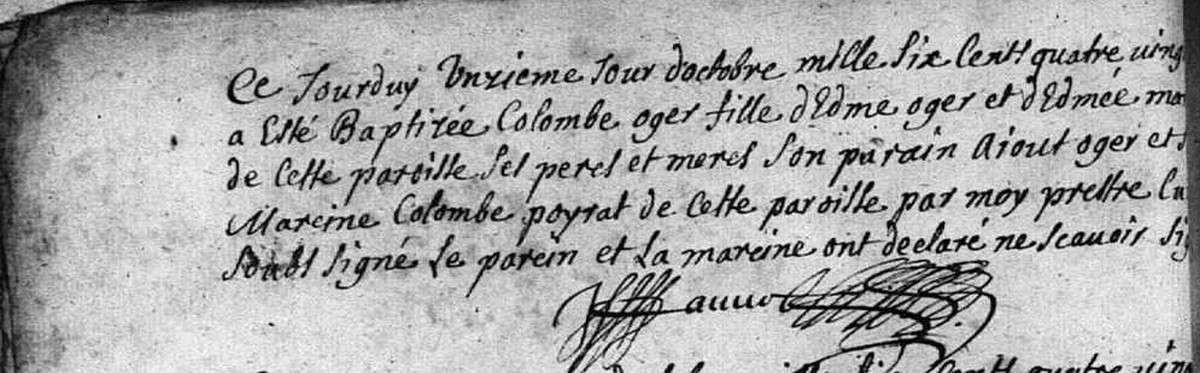 Ce Jourduy Unzieme Jour doctobre mille Six Centt quatre ving
a Esté Baptizée Colombe oger fille dEdme oger et dEdmée
de Cette paroisse Ses peres et meres Son parain oger et
Mareine Colombe poyrat de Cette paroisse par moy prestre
Soubs signé Le parein et La mareine ont declaré ne scavoir Sig
quatre